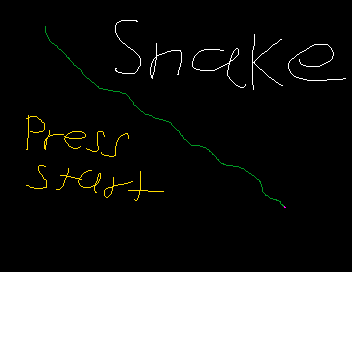 Snake
Press
start